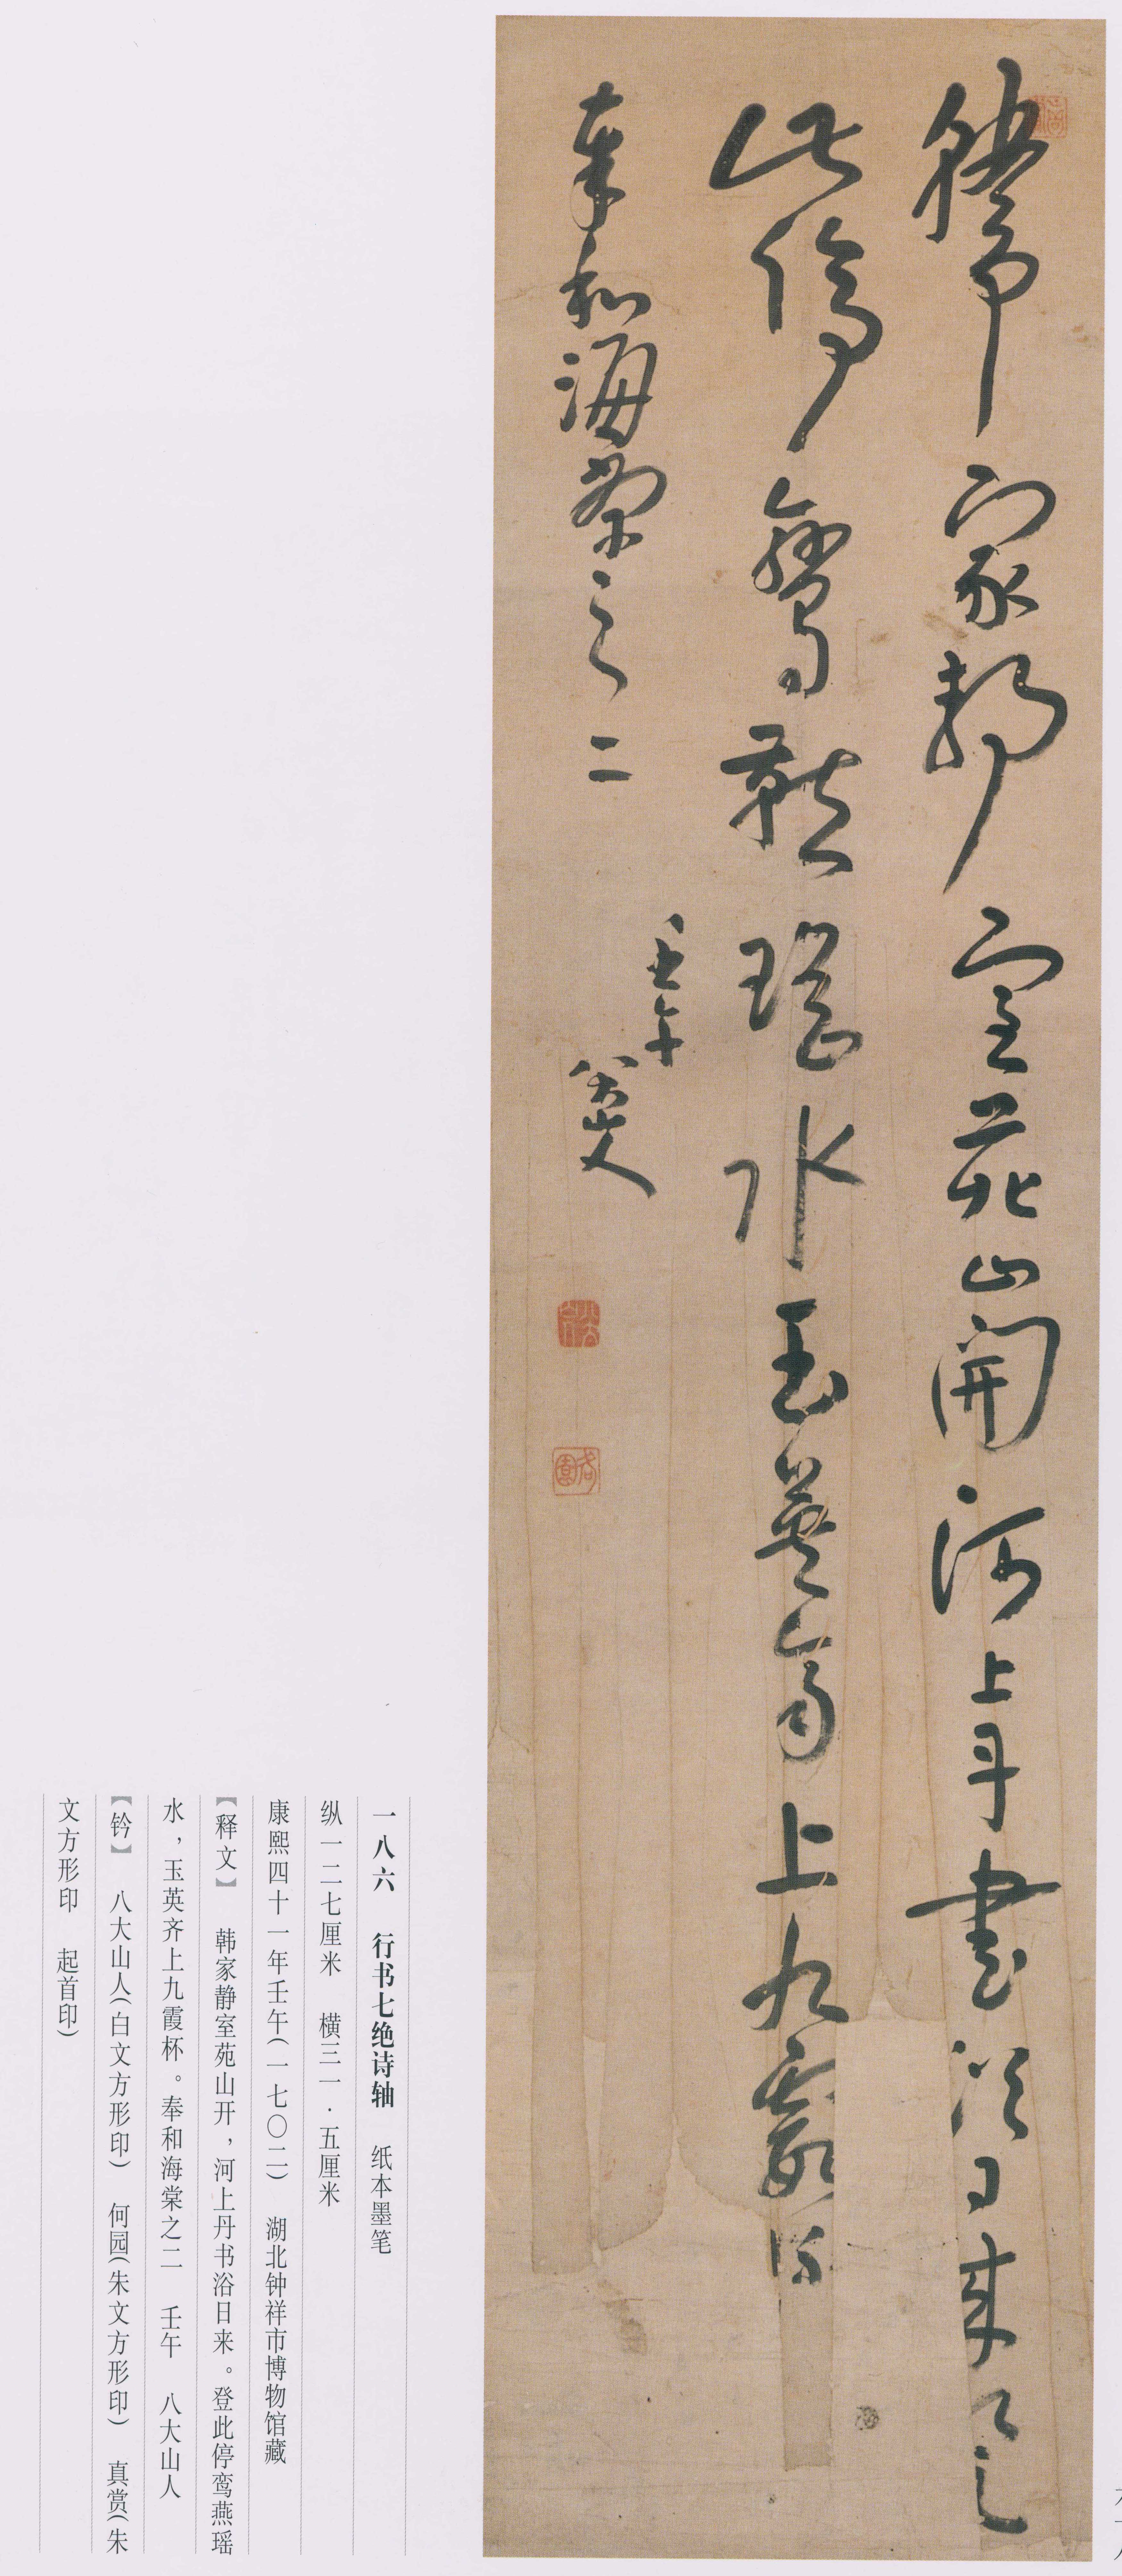 韓家靜室苑山開河上丹書浴日來登
此停鸞燕瑤水玉英齊上九霞杯
奉和海棠之二
壬午
八大山人
一八六 行书七绝诗轴 纸本墨笔
纵一二七厘米 横三一·五厘米
康熙四十一年壬午(一七〇二) 湖北钟祥市博物馆藏
【释文】 韩家静室苑山开，河上丹书浴日来。登此停鸾燕瑶
水，玉英齐上九霞杯。奉和海棠之二 壬午 八大山人
【钤】 八大山人(白文方形印) 何园(朱文方形印) 真赏(朱
文方形印 起首印)